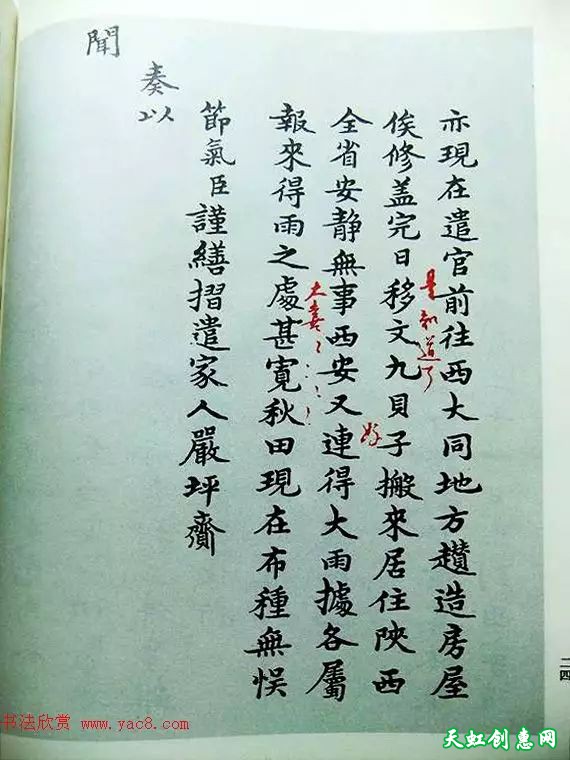 亦現在遣官前往西大同地方趲造房屋
是知道了
俟修盖完日移文九貝子搬來居住陝西
好
全省安靜無事西安又連得大雨據各屬
大喜
報來得雨之處甚寬秋田現在布種無悮
節氣臣謹繕摺遣家人嚴坪齎
奏以
聞
二四
书法欣赏 www.yac8.com
天虹创惠网